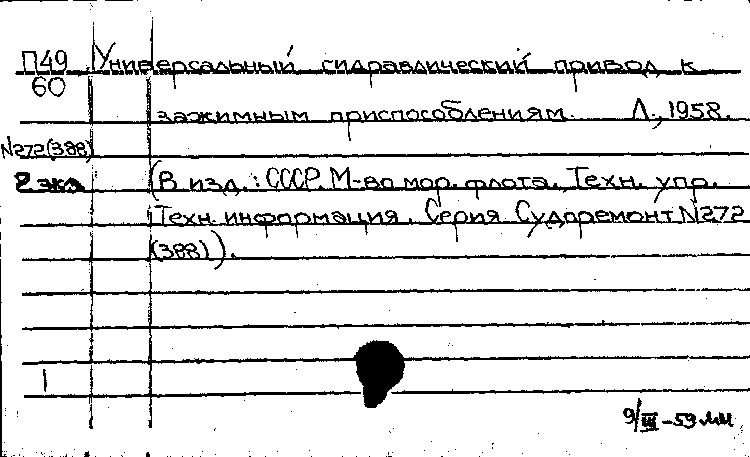 П49 Универсальный гидравлический привод к
60
зажимным приспособлениям. Л., 1958.
N272(388)
2 экз. (В изд.: СССР. М-во мор. флота. Техн. упр.
Техн. информация. Серия Судоремонт N272
(388)).
1
9/III-59 мм